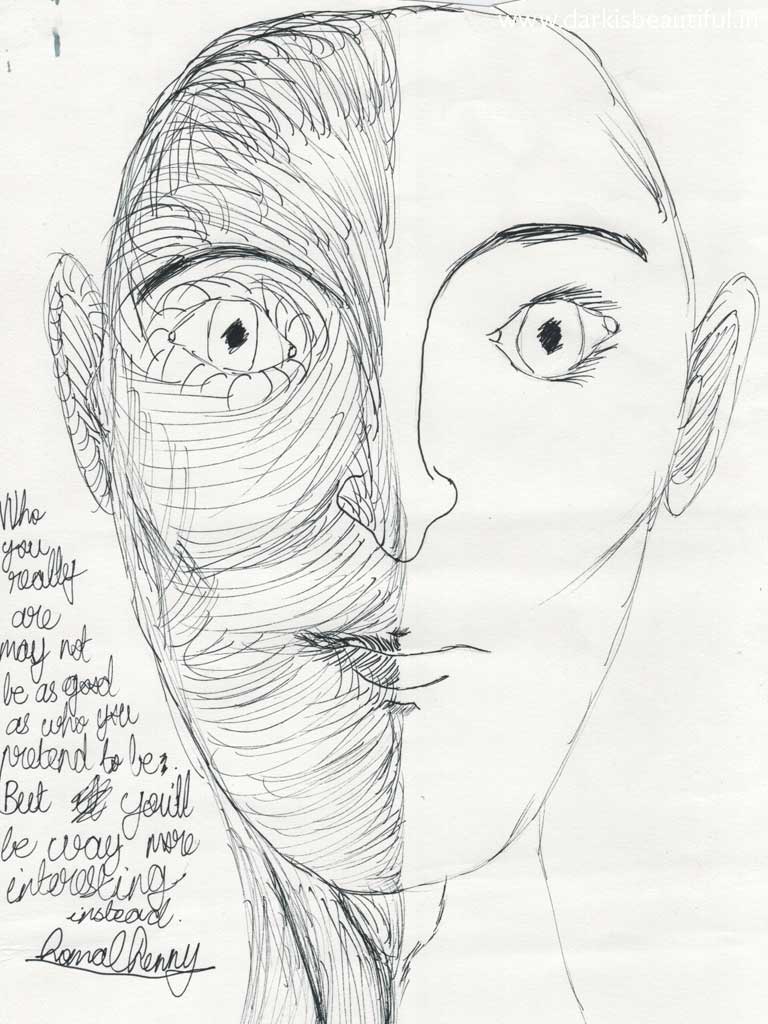 www.darkisbeautiful.in
Who
you
really
are
may not
be as good
as who you
pretend to be.
But you'll
be way more
interesting
instead.